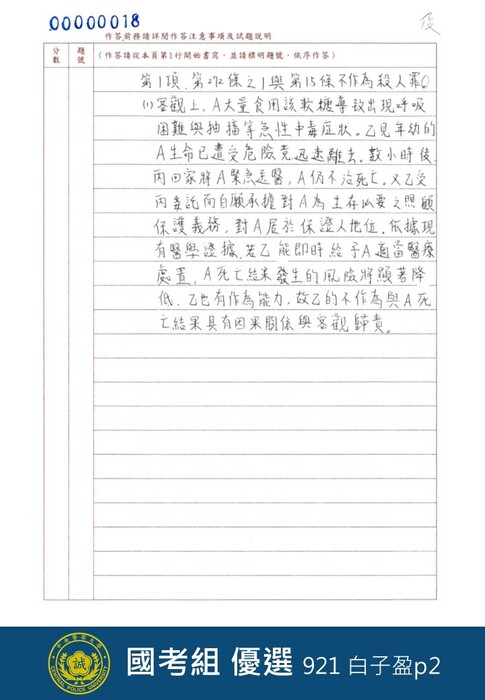 00000018
作答前務請詳閱作答注意事項及試題說明
分數
題號
（作答請從本頁第1行開始書寫，並請標明題號，依序作答）
第1項、第272條之1與第15條不作為殺人罪。
(1)客觀上，A大量食用該軟糖導致出現呼吸
困難與抽搐等急性中毒症狀。乙見年幼的
A生命已遭受危險竟迅速離去。數小時後，
丙回家將A緊急送醫，A仍不治死亡。又乙受
丙委託而自願承擔對A為生存必要之照顧
保護義務，對A居於保證人地位。依據現
有醫學證據，若乙能即時給予A適當醫療
處置，A死亡結果發生的風險將顯著降
低。乙也有作為能力，故乙的不作為與A死
亡結果具有因果關係與客觀歸責。
誠
CENTRAL POLICE UNIVERSITY
國考組 優選 921 白子盈p2